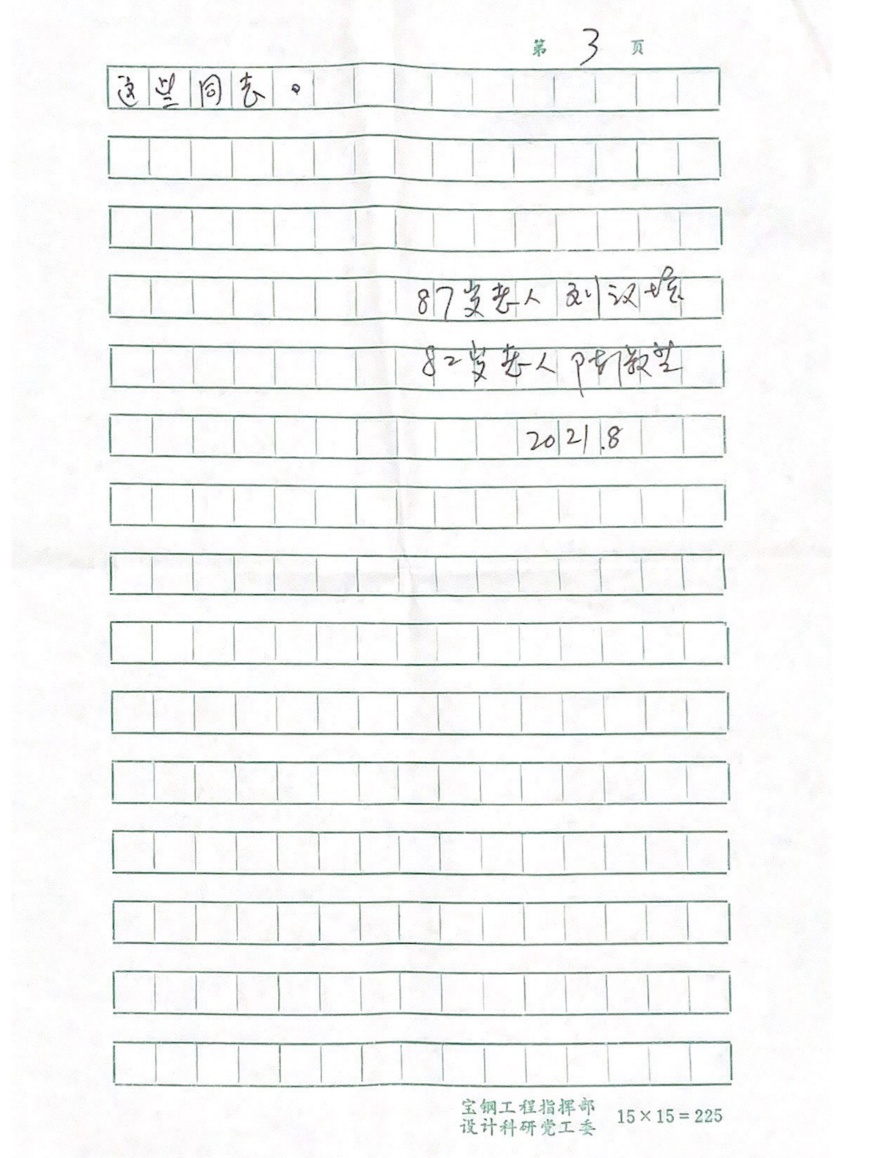 第 3 页
这些同志。
87岁老人 刘汉
82岁老人 陈敏
2021.8
宝钢工程指挥部
设计科研党工委 15×15=225